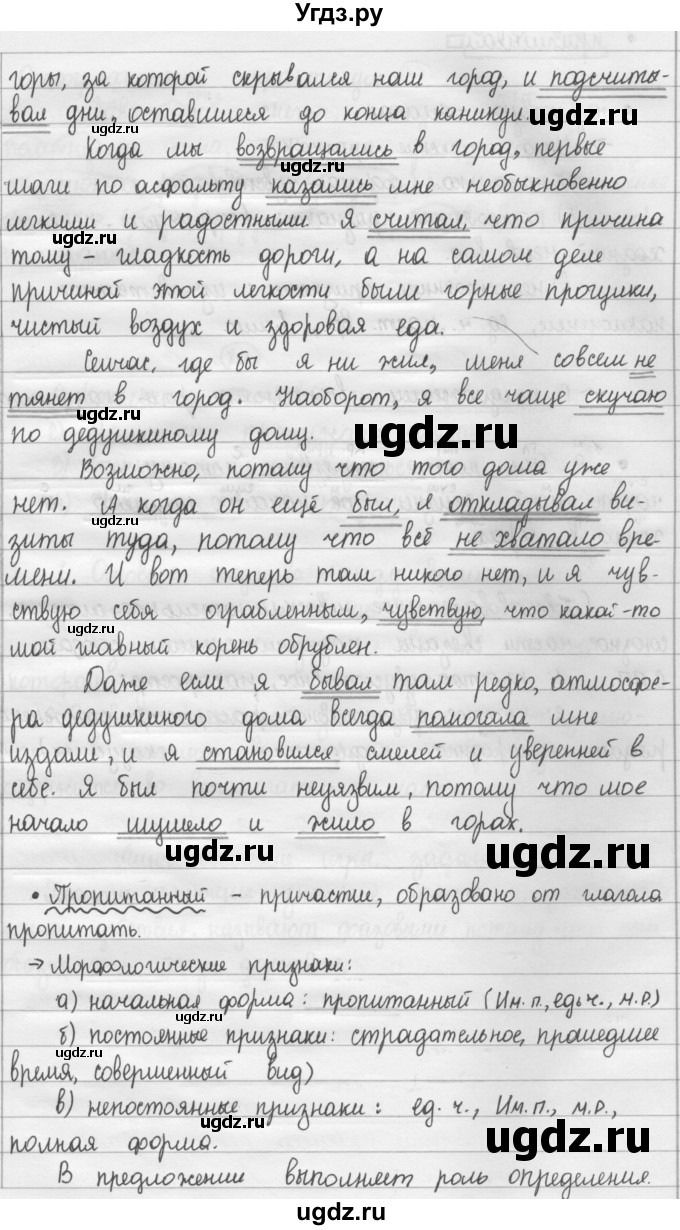 Угдз.ру
горы, за которой скрывался наш город, и подсчиты-
вал дни, оставшиеся до конца каникул.
ugdz.ru
ugdz.ru
Когда мы возвращались в город, первые
ugdz.ru
шаги по асфальту казались мне необыкновенно
легкими и радостными я считал, что причина
ugdz.ru
тому - гладкость дороги, а на самом деле
причиной этой легкости были горные прогулки,
чистый воздух и здоровая еда.
Сейчас, где бы я ни жил, меня совсем не
тянет в город. Наоборот, я все чаще скучаю
ugdz.ru
по дедушкиному дому.
ugdz.ru
Возможно, потому что того дома уже
нет. А когда он ещё был, я откладывал ви-
ugdz.ru
зиты туда, потому что всё не хватало вре-
мени. И вот теперь там никого нет, и я чув-
ствую себя ограбленным, чувствую, что какой-то
ugdz.ru
мой главный корень обрублен.
Даже если я бывал там редко, атмосфе-
ра дедушкиного дома всегда помогала мне
ugdz.ru
издали, и я становился смелей и уверенней в
себе. Я был почти неуязвим, потому что мое
начало шумело и жило в горах.
ugdz.ru
ugdz.ru
• Пропитанный - причастие, образовано от глагола
ugdz.ru
пропитать.
→ Морфологические признаки:
а) начальная форма: пропитанный (Им.п., ед.ч., м.р.)
б) постоянные признаки: страдательное, прошедшее
ugdz.ru
время, совершенный вид)
в) непостоянные признаки: ед.ч., Им.п., м.р.,
полная форма.
ugdz.ru
В предложении выполняет роль определения.
ugdz.ru